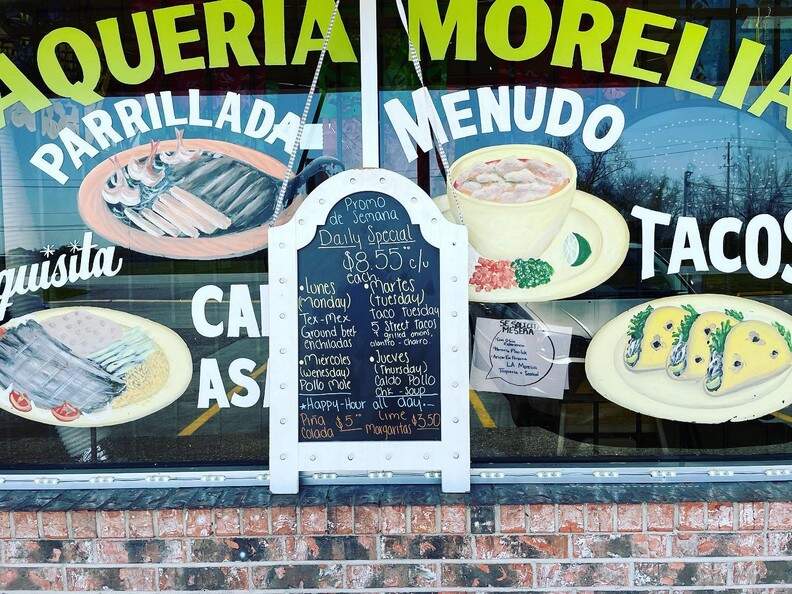 AQUERIA MORELIA
PARRILLADA
MENUDO
quisita
CA
ASA
TACOS
Promo
de Semana
Daily Special
$8.55 c/u
each
•Lunes
(Monday)
Tex-Mex
Ground beef
enchiladas
•Miercoles
(Wenesday)
Pollo Mole
•Martes
(Tuesday)
Taco Tuesday
5 Street Tacos
grilled onions,
cilantro - charro.
•Jueves
(Thursday)
Caldo Pollo
Chk - Soup
*Happy-Hour all day.
Piña
Colada $5
Lime
Margaritas $3.50
SE SOLICITA
MESERA
LA Morelia
Taqueria